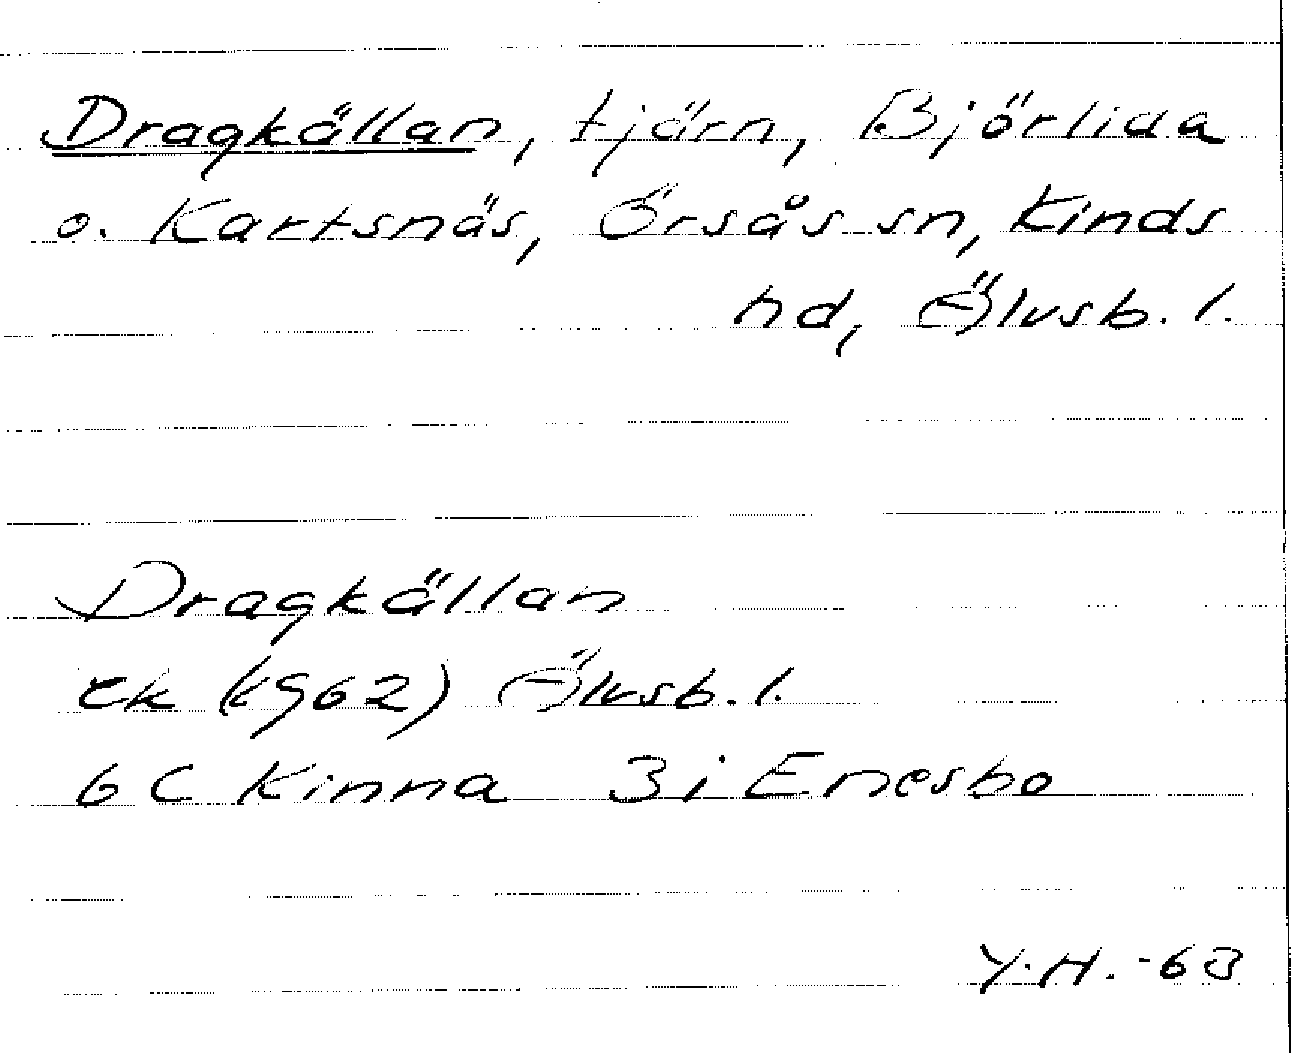 Dragkällan, tjärn, Björlida
o. Kartsnäs, Örsås sn, Kinds
hd, Älvsb. l.
Dragkällan
ek (1962) Älvsb. l.
6 C Kinna 3i Enesbo
Y.H. -63